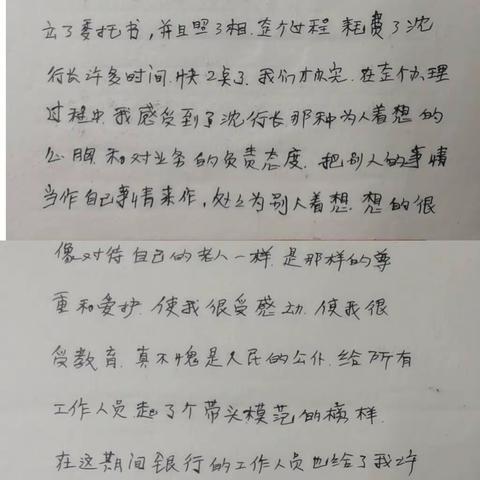 立了委托书,并且照了相.整个过程 耗费了沈
行长许多时间.快2点了.我们才办完.在整个办理
过程中.我感受到了沈行长那种为人着想的
心胸和对业务的负责态度.把别人的事情
当作自己事情来作,处处为别人着想.想的很
像对待自己的老人一样.是那样的尊
重和爱护.使我很受感动.使我很
受教育.真不愧是人民的公仆.给所有
工作人员.起了个带头模范的榜样.
在这期间银行的工作人员也给了我许